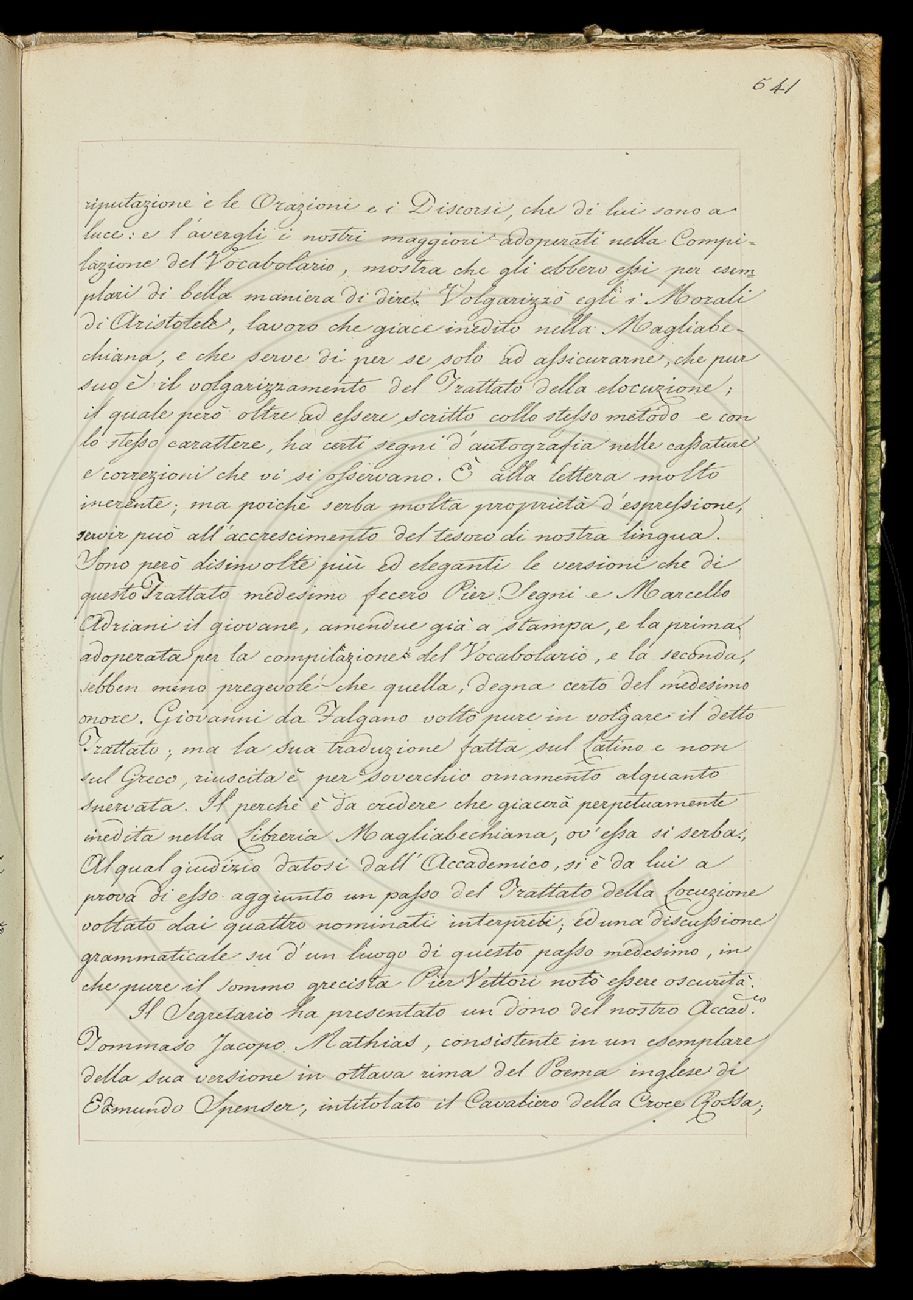 641
riputazione è le Orazioni e i Discorsi, che di lui sono a
luce: e l'avergli i nostri maggiori adoperati nella Compi-
lazione del Vocabolario, mostra che gli ebbero essi per esem-
plari di bella maniera di dire. Volgarizzò egli i Morali
di Aristotele, lavoro che giace inedito nella Magliabe-
chiana, e che serve di per se solo ad assicurarne, che pur
suo è il volgarizzamento del Trattato della elocuzione;
il quale però oltre ad essere scritto collo stesso metodo e con
lo stesso carattere, ha certi segni d'autografia nelle cassature
e correzioni che vi si osservano. È alla lettera molto
inerente; ma poichè serba molta proprietà d'espressione,
servir può all'accrescimento del tesoro di nostra lingua.
Sono però disinvolte più ed eleganti le versioni che di
questo Trattato medesimo fecero Pier Segni e Marcello
Adriani il giovane, amendue già a stampa, e la prima
adoperata per la compilazione del Vocabolario, e la seconda,
sebben meno pregevole che quella, degna certo del medesimo
onore. Giovanni da Falgano voltò pure in volgare il detto
Trattato; ma la sua traduzione fatta sul Latino e non
sul Greco, riuscita è per soverchio ornamento alquanto
snervata. Il perchè è da credere che giacerà perpetuamente
inedita nella Libreria Magliabechiana, ov'essa si serba.
Al qual giudizio datosi dall'Accademico, si è da lui a
prova di esso aggiunto un passo del Trattato della Locuzione
voltato dai quattro nominati interpreti; ed una discussione
grammaticale su d'un luogo di questo passo medesimo, in
che pure il sommo grecista Pier Vettori notò essere oscurità.
Il Segretario ha presentato un dono del nostro Accad.co
Tommaso Jacopo Mathias, consistente in un esemplare
della sua versione in ottava rima del Poema inglese di
Edmundo Spenser, intitolato il Cavaliero della Croce Rossa;